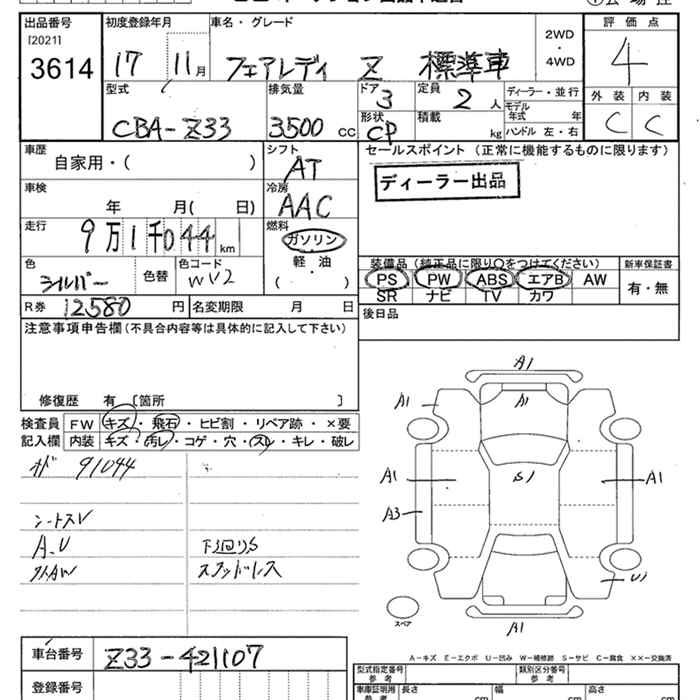 出品番号 初度登録年月 車名・グレード 評価点
[2021] 3614 17 11月 フェアレディ Z 標準車 2WD・4WD 4
型式 CBA-Z33 排気量 3500 CC ドア 3 形状 CP 定員 2 人 積載 kg ディーラー・並行 モデル年式 年 ハンドル 左・右 外装 C 内装 C
車歴 自家用・( ) シフト AT セールスポイント (正常に機能するものに限ります)
ディーラー出品
車検 年 月( 日) 冷房 AAC
走行 9万1千044 km 燃料 ガソリン
軽・油
( )
色 シルバー 色替 色コード WV2
装備品 (純正品に限り〇をつけてください) 新車保証書
PS PW ABS エアB AW 有・無
SR ナビ TV カワ
R券 12,580 円 名変期限 月 日 後日品
注意事項申告欄 (不具合内容等は具体的に記入して下さい)
修復歴 有 〔箇所 〕
検査員 FW キズ・飛石・ヒビ割・リペア跡・×要
記入欄 内装 キズ・汚レ・コゲ・穴・スレ・キレ・破レ
メーター 91044
シートスV
A.U
下廻りS
スタッドレス
A1
A1 A1
A1 S1 A1
A3
U1
A1
スペア
A-キズ E-エクボ U-凹み W-補修跡 S-サビ C-腐食 ××-交換済
車台番号 Z33-421107
登録番号
型式指定番号 参考 類別区分番号 参考
車庫証明用 参考 長さ cm 幅 cm 高さ cm